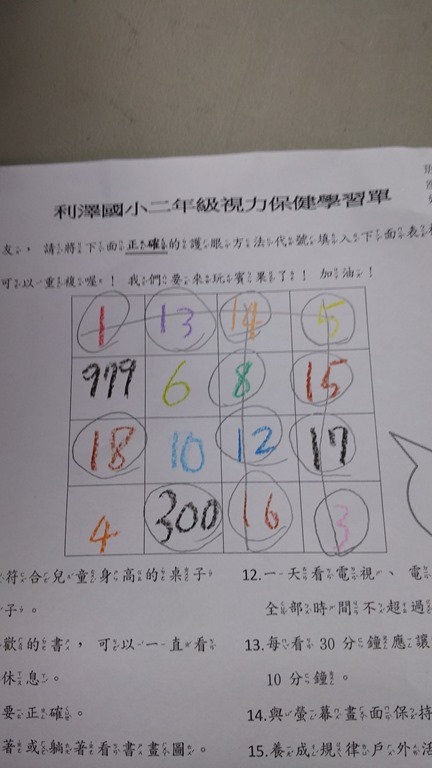 利澤國小二年級視力保健學習單
友，請將下面正確的護眼方法代號填入下面表
可以重複喔！我們要來玩賓果了！加油！
1 13 14 5
999 6 8 15
18 10 12 17
4 300 16 3
符合兒童身高的桌子
子。
歡的書，可以一直看
休息。
要正確。
著或躺著看書畫圖。
12.一天看電視、電
全部時間不超過
13.每看 30 分鐘應讓
10 分鐘。
14.與螢幕畫面保持
15.養成規律戶外活